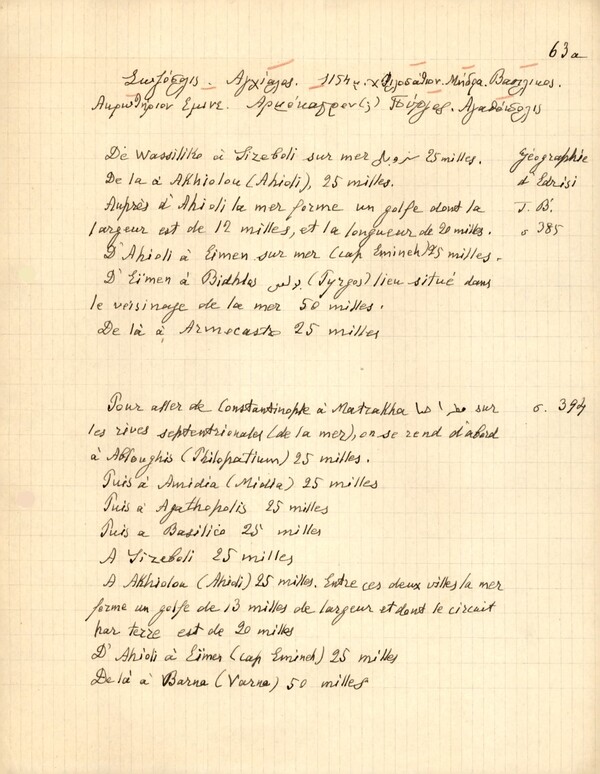 63a
Σωζόπολις. Αγχίαλος. 1154 μ.χ. Φιλοπάτιον. Μήδεα. Βασιλικος.
Ακρωτήριον Εμινε. Αρμόκαστρον(;) Πύργος. Αγαθόπολις
De Wassiliko à Sizeboli sur mer 25 milles. Géographie
De la à Akhiolou (Ahioli), 25 milles. d'Edrisi
Auprès d'Ahioli la mer forme un golfe dont la T. B.
largeur est de 12 milles, et la longueur de 20 milles. σ 385
D'Ahioli à Eimen sur mer (cap Emineh) 25 milles.
D'Eïmen à Bidhlos (Pyrgos) lieu situé dans
le voisinage de la mer 50 milles.
De là à Armocastro 25 milles
Pour aller de Constantinople à Matrakha sur σ. 394
les rives septentrionales (de la mer), on se rend d'abord
à Abloughis (Philopatium) 25 milles.
Puis à Amidia (Midia) 25 milles
Puis à Agathopolis 25 milles
Puis a Basilico 25 milles
A Sizeboli 25 milles
A Akhiolou (Ahioli) 25 milles. Entre ces deux villes la mer
forme un golfe de 13 milles de largeur et dont le circuit
par terre est de 20 milles
D'Ahioli à Eïmer (cap Emineh) 25 milles
De là à Barna (Varna) 50 milles